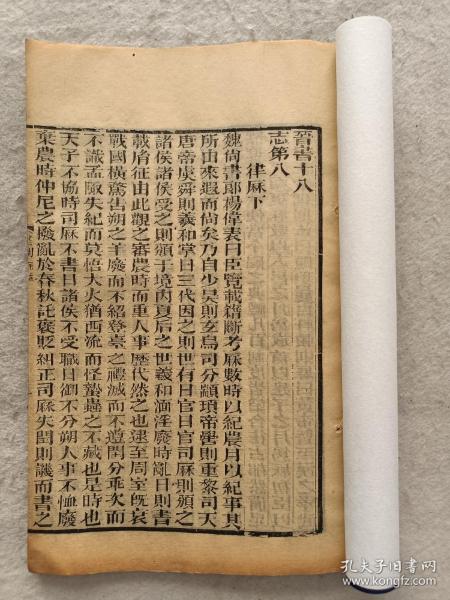 晉書十八
志第八
律厤下
魏尚書郎楊偉表曰臣覽載籍斷考厤數時以紀農月以紀事其
所由來遐而尚矣乃自少昊則玄鳥司分顓頊帝嚳則重黎司天
唐帝虞舜則羲和掌日三代因之則世有日官日官司厤則頒之
諸侯諸侯受之則頒于境內夏后之世羲和湎淫廢時亂日則書
載胤征由此觀之審農時而重人事歷代然之也逮至周室旣衰
戰國橫騖告朔之羊廢而不紹登臺之禮滅而不遵閏分乖次而
不識孟陬失紀而莫悟大火猶西流而怪蟄蟲之不藏也是時也
天子不協時司厤不書日諸侯不受職日御不分朔人事不恤廢
棄農時仲尼之撥亂於春秋託褒貶糾正司厤失閏則譏而書之
孔夫子旧书网